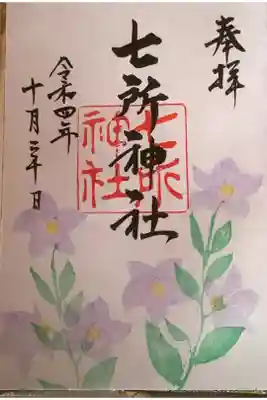 奉拝
七所神社
七所
神社
令和四年
十月 日